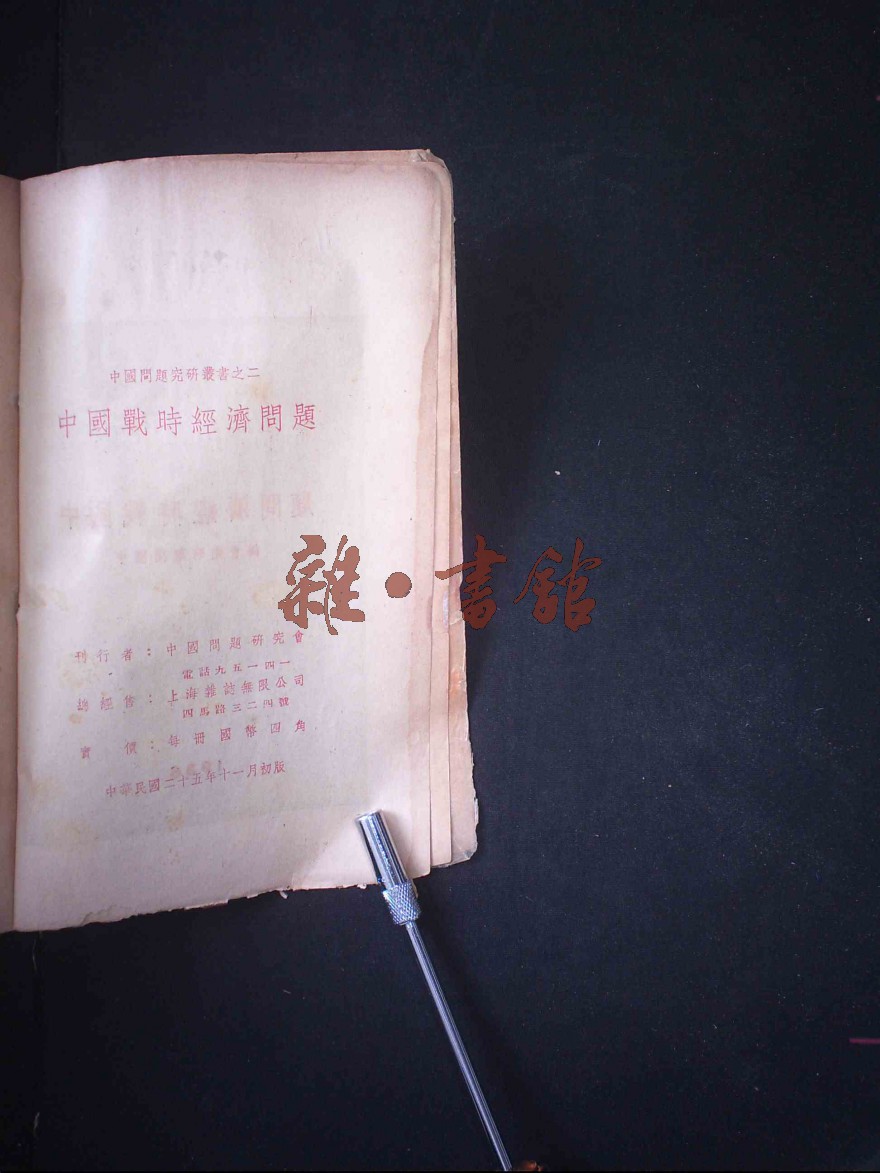 中國問題完研叢書之二
中國戰時經濟問題
雜•書館
刊行者：中國問題研究會
電話九五一四一
總經售：上海雜誌無限公司
四馬路三二四號
實價：每冊國幣四角
中華民國二十五年十一月初版